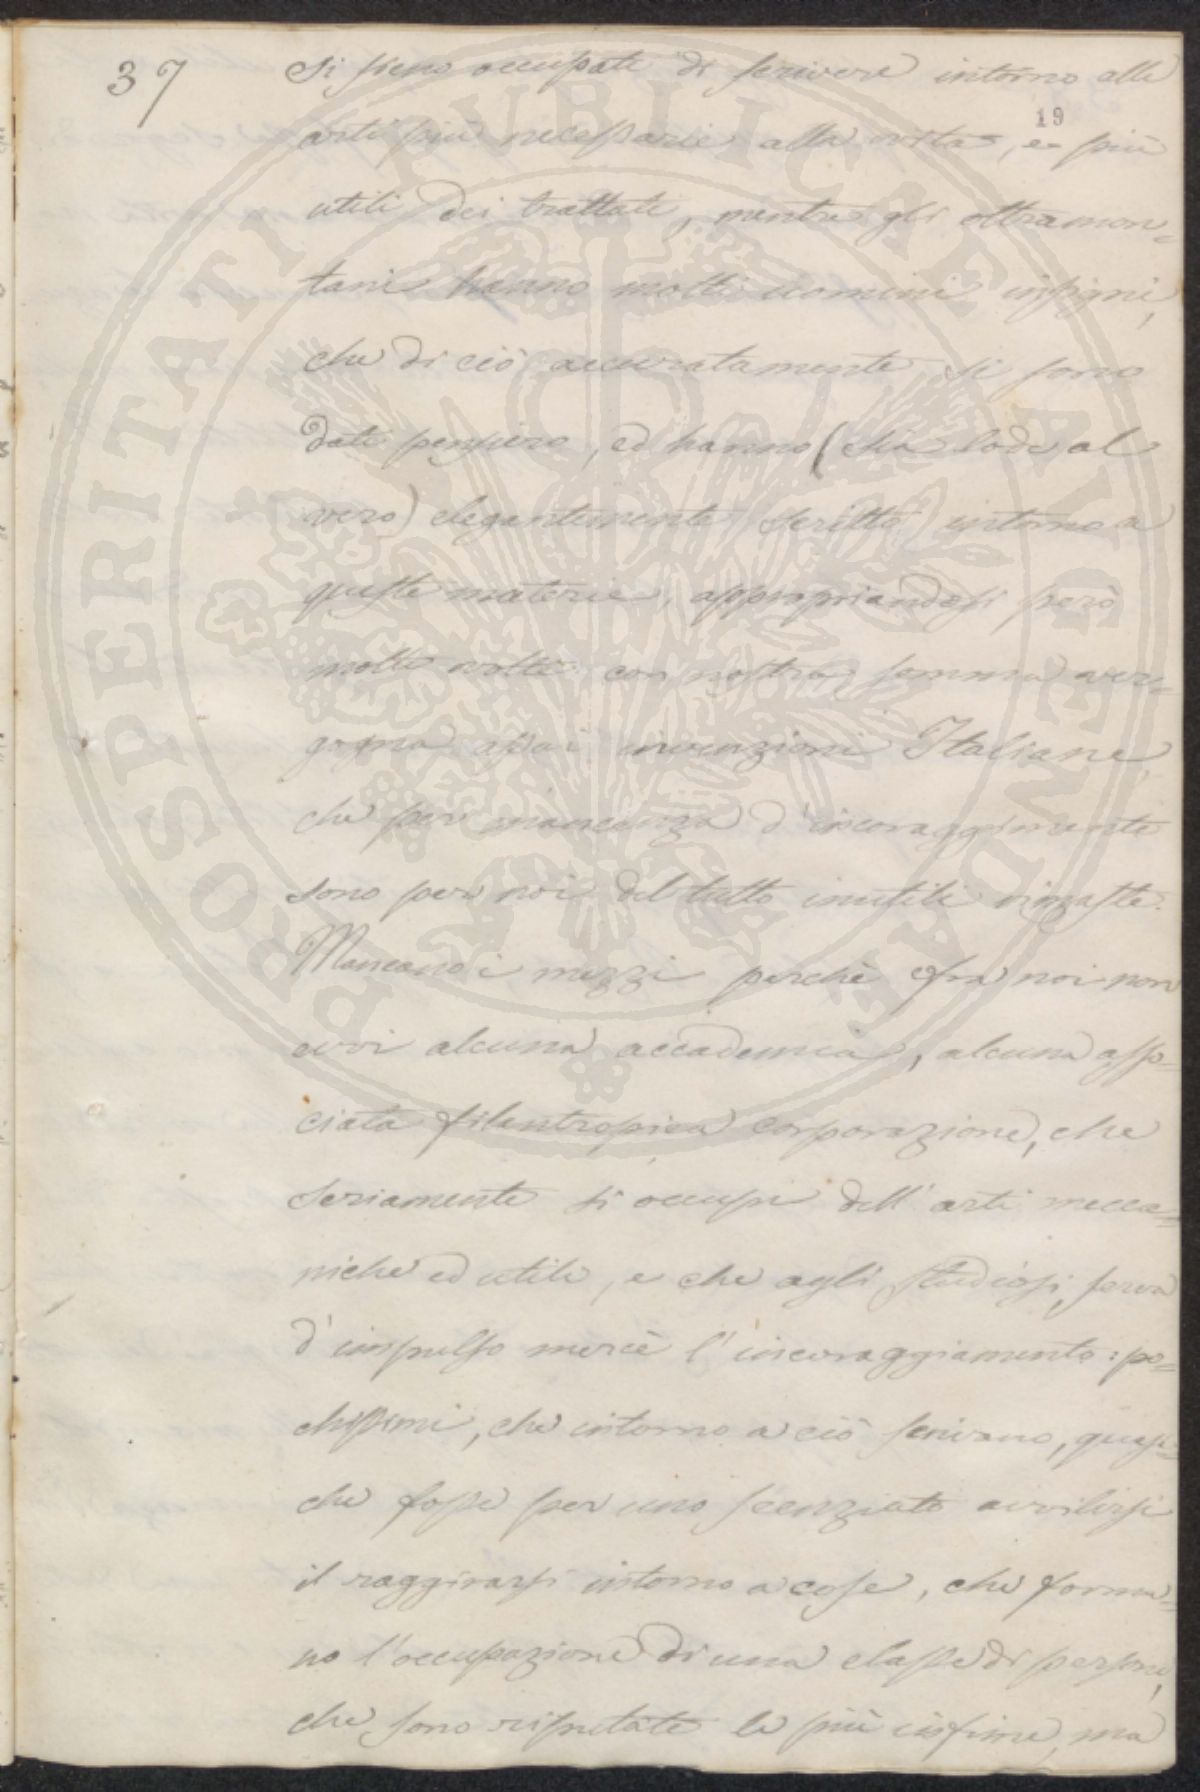 37
si sieno occupati di scrivere intorno alle
19
arti più necessarie alla vita, e più
utili dei trattati, mentre gli oltramon=
tani hanno molti uomini insigni,
che di ciò accuratamente si sono
dati pensiero, ed hanno (sia lode al
vero) elegantemente scritto intorno a
queste materie, appropriandosi però
molte volte con nostra somma ver=
gogna assai invenzioni Italiane,
che per mancanza d'incoraggimento
sono per noi del tutto inutili rimaste.
Mancano i mezzi perchè fra noi non
evvi alcuna accademia, alcuna asso=
ciata filantropica corporazione, che
seriamente si occupi dell'arti mecca=
niche ed utili, e che agli studiosi serva
d'impulso mercè l'incoraggiamento: po=
chissimi, che intorno a ciò scrivano, quasi=
che fosse per uno scenziato avvilirsi
il raggirarsi intorno a cose, che forma=
no l'occupazione di una classe di persone,
che sono riputate le più infime, ma
PROSPERITATI PUBLICAE AUGENDAE